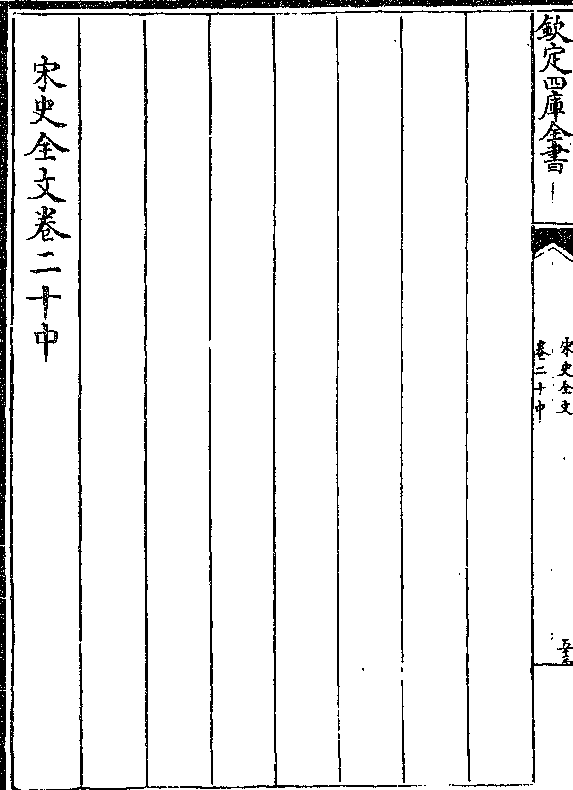 欽定四庫全書
宋史全文
卷二十中
宋史全文卷二十中